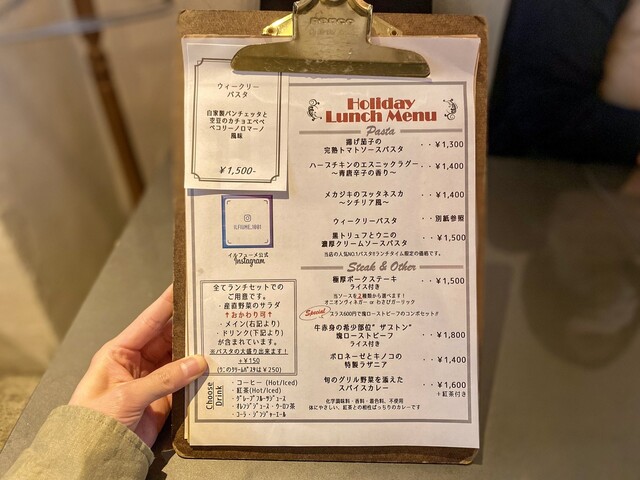 ウィークリー
パスタ
自家製パンチェッタと
空豆のカチョエペペ
ペコリーノロマーノ
風味
¥1,500-
ILFIUME_1001
イルフューメ公式
Instagram
全てランチセットでの
ご用意です。
・産直野菜のサラダ
↑おかわり可↑
・メイン(右記より)
・ドリンク(下記より)
が含まれています。
※パスタの大盛り出来ます!
+¥150
(ウニのクリームパスタは¥250)
Choose Drink
・コーヒー (Hot/Iced)
・紅茶(Hot/Iced)
・グレープフルーツジュース
・オレンジジュース・ウーロン茶
・コーラ・ジンジャーエール
Holiday
Lunch Menu
Pasta
揚げ茄子の
完熟トマトソースパスタ ・・¥1,300
ハーブチキンのエスニックラグー ・・¥1,400
〜青唐辛子の香り〜
メカジキのプッタネスカ ・・¥1,400
〜シチリア風〜
ウィークリーパスタ ・・別紙参照
黒トリュフとウニの
濃厚クリームソースパスタ ・・¥1,500
当店の人気NO.1パスタ!!ランチタイム限定の価格です。
Steak & Other
極厚ポークステーキ ・・¥1,500
ライス付き
当ソースを2種類から選べます!
オニオンヴィネガー or わさびガーリック
Special
プラス600円で塊ローストビーフのコンボセット!!
牛赤身の希少部位"ザブトン"
塊ローストビーフ ・・¥1,800
ライス付き
ボロネーゼとキノコの ・・¥1,400
特製ラザニア
旬のグリル野菜を添えた
スパイスカレー ・・¥1,600
+紅茶付き
化学調味料・香料・着色料、不使用
体にやさしい、紅茶との相性ばっちりのカレーです